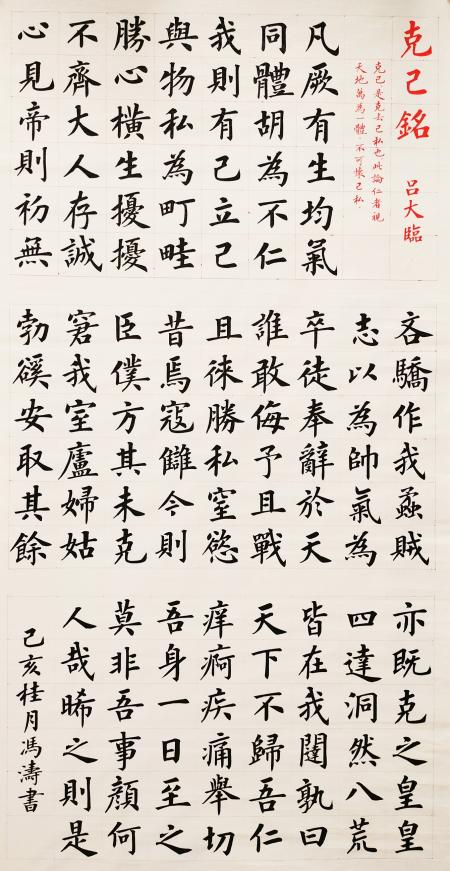 克己銘 呂大臨
克己是克去己私也此論仁者視
天地萬為一體不可懷己私
凡厥有生均氣
同體胡為不仁
我則有己立己
與物私為町畦
勝心橫生擾擾
不齊大人存誠
心見帝則初無
吝驕作我蟊賊
志以為帥氣為
卒徒奉辭於天
誰敢侮予且戰
且徠勝私窒慾
昔焉寇讎今則
臣僕方其未克
窘我室廬婦姑
勃谿安取其餘
亦既克之皇皇
四達洞然八荒
皆在我闥孰曰
天下不歸吾仁
痒痾疾痛舉切
吾身一日至之
莫非吾事顏何
人哉晞之則是
己亥桂月馮濤書